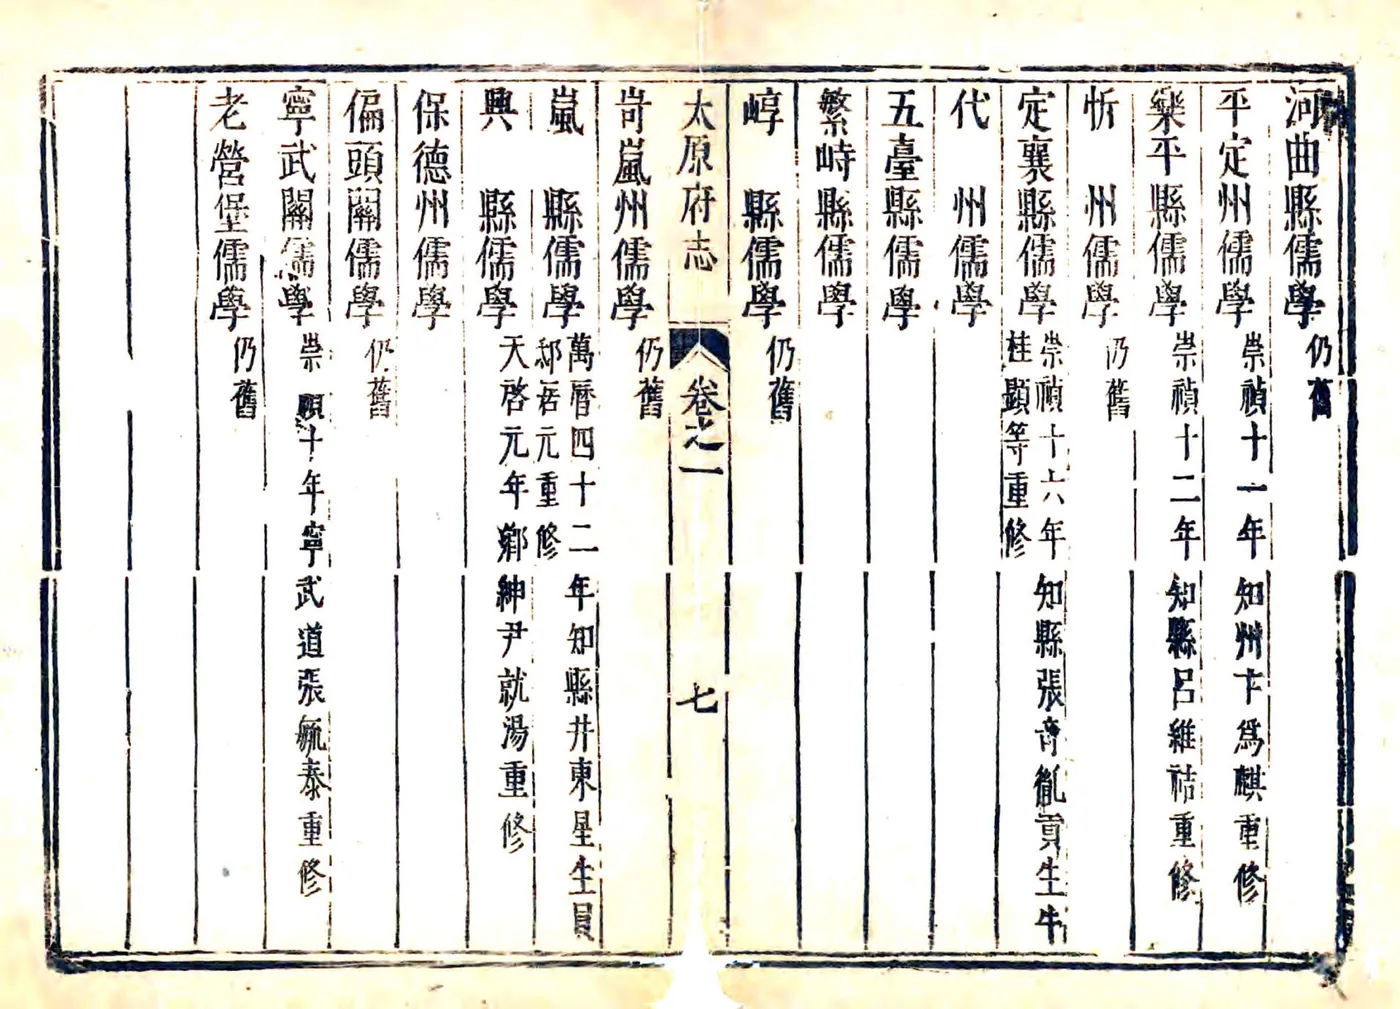 河曲縣儒學仍舊
平定州儒學崇禎十一年知州卞爲麒重修
樂平縣儒學崇禎十二年知縣呂維祮重修
忻州儒學仍舊
定襄縣儒學崇禎十六年知縣張育胤貢生牛
桂顯等重修
代州儒學
五臺縣儒學
繁峙縣儒學
崞縣儒學仍舊
太原府志 卷之一 七
岢嵐州儒學仍舊
嵐縣儒學萬曆四十二年知縣井東星生員
元重修
興縣儒學天啓元年鄉紳尹就湯重修
保德州儒學
偏頭關儒學仍舊
寧武關儒學崇禎十年寧武道張毓泰重修
老營堡儒學仍舊